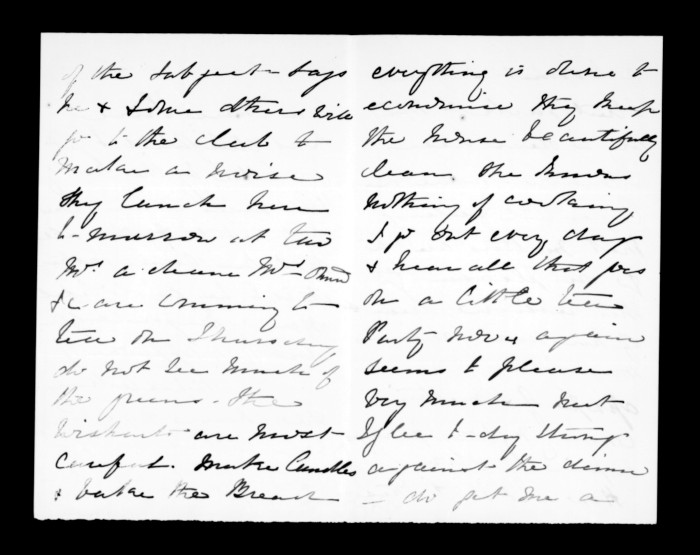 of the subject - says
he & some others will
go to the club to
make a noise
they lunch here
to-morrow at two
Mrs a. Mrs
&c are comming to
tea on Thursday
do not see much of
the the
are most
careful. make Candles
& bake the Bread
everything is done to
economise they keep
the house beautifully
clean she knows
nothing of cooking
I go out every day
& hear all that goes
on a little tea
Party now & again
seems to please
very much
to-day
against the dinner
- do get me a